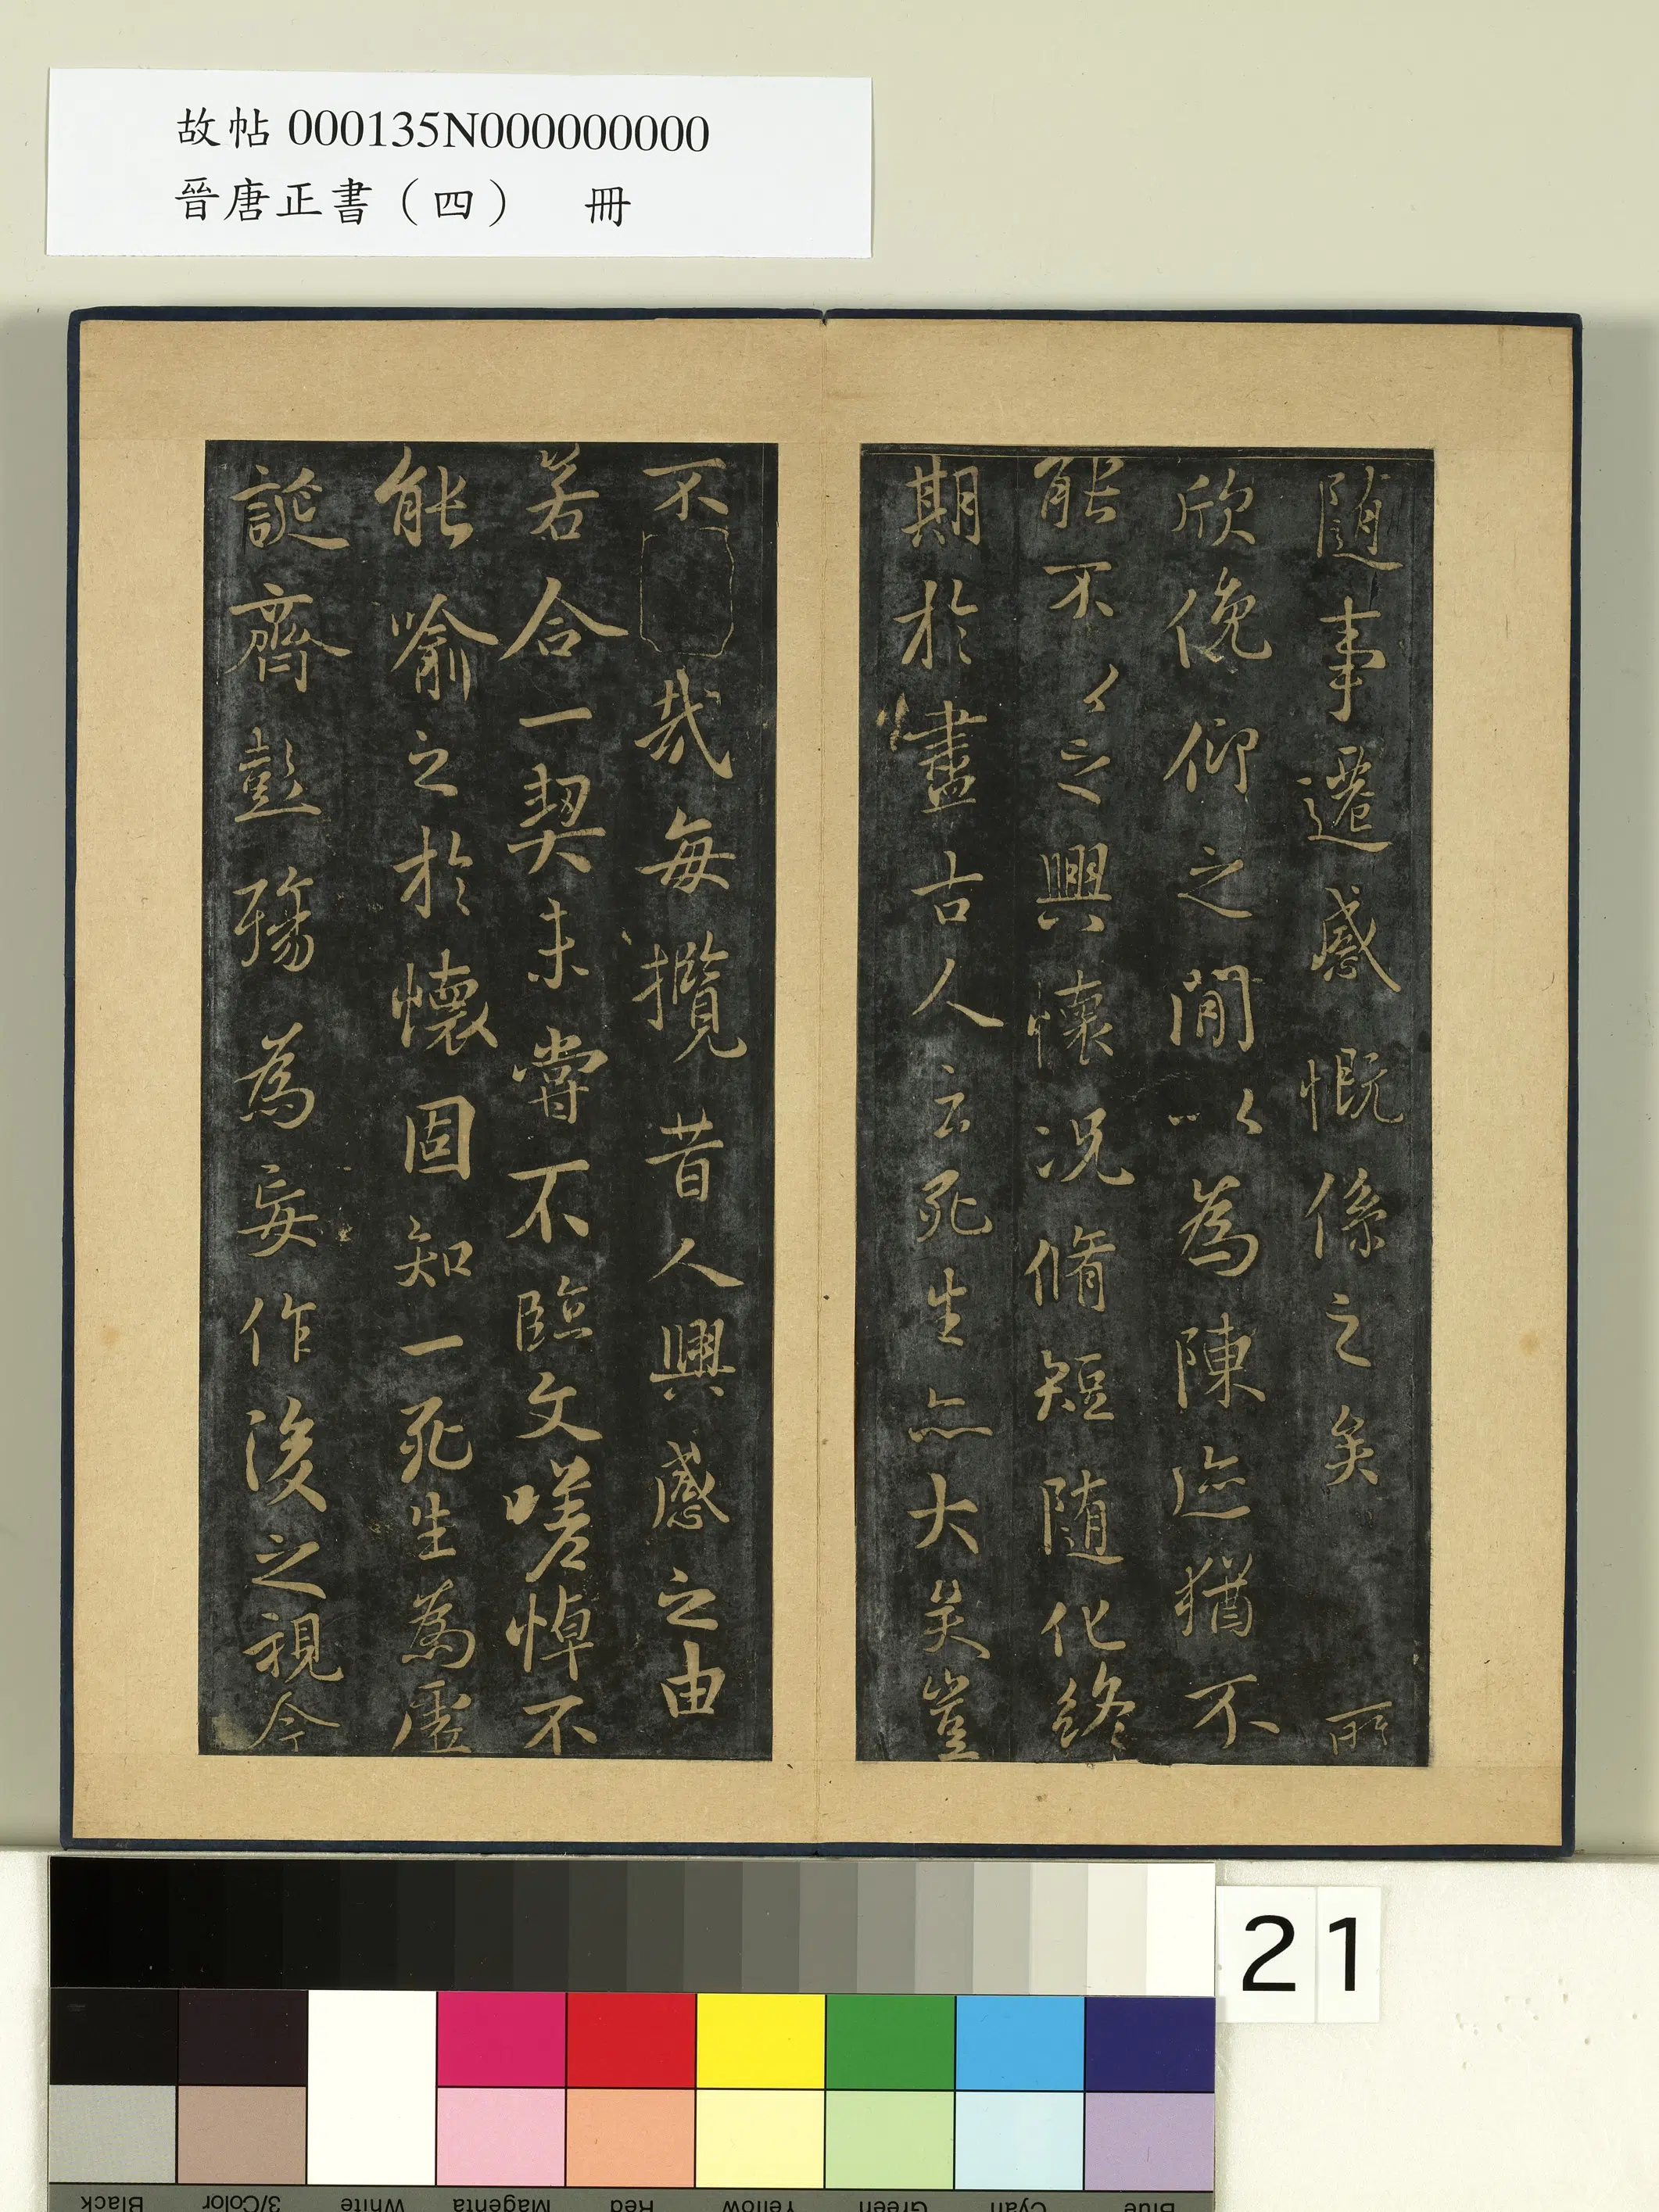 故帖 000135N000000000
晉唐正書（四） 冊
隨事遷感慨係之矣所
欣俛仰之閒以為陳迹猶不
能不以之興懷況脩短隨化終
期於盡古人云死生亦大矣豈
不哉每攬昔人興感之由
若合一契未嘗不臨文嗟悼不
能喻之於懷固知一死生為虛
誕齊彭殤為妄作後之視今
21
Black 3/Color White Magenta Red Yellow Green Cyan Blue